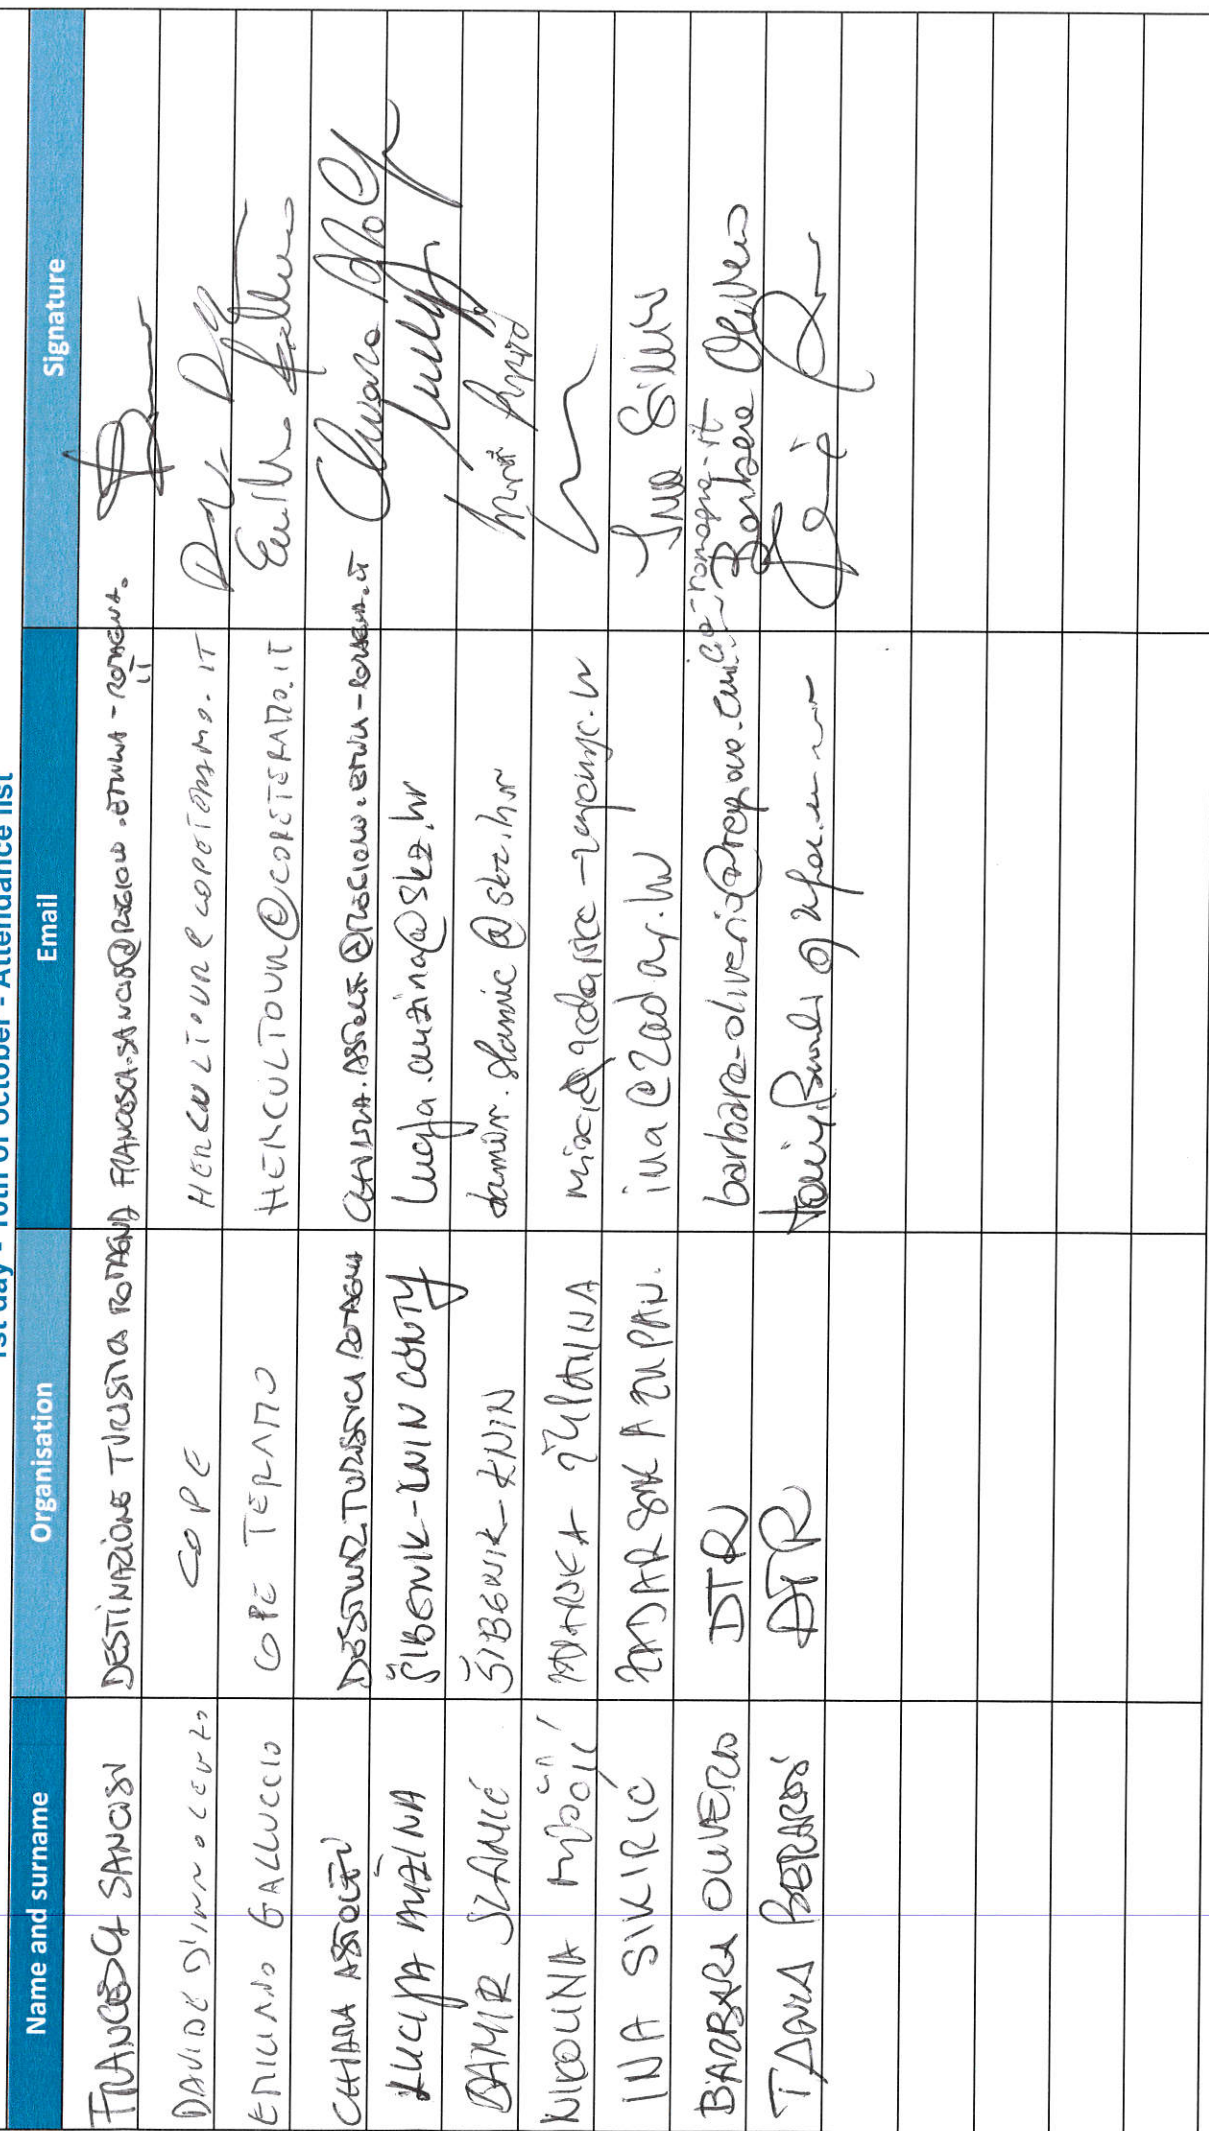 1st day - 10th of october - Attendance list
Name and surname Organisation Email Signature
FRANCESCA SANCISI DESTINAZIONE TURISTICA ROMAGNA FRANCESCA.SANCISI@REGIONE.EMILIA-ROMAGNA.IT
DAVIDE D'INNOCENZO COPE HERCULTOUR@COPETERAMO.IT
EMILIANO GALLUCCIO COPE TERAMO HERCULTOUR@COPETERAMO.IT Emiliano Galluccio
CHIARA ASTOLFI DESTINAZ. TURISTICA ROMAGNA CHIARA.ASTOLFI@REGIONE.EMILIA-ROMAGNA.IT Chiara Astolfi
LUCIJA AUŽINA ŠIBENIK-KNIN COUNTY lucija.auzina@skz.hr
DAMIR SLAMIĆ ŠIBENIK-KNIN damir.slamic@skz.hr
NIKOLINA ŽUPANIJA
INA SIKIRIĆ ZADARSKA ŽUPAN. ina@zadar.hr Ina Sikirić
BARBARA OLIVERIO DTR barbara.oliverio@regione.emilia-romagna.it Barbara Oliverio
TANIA BERARDI DTR